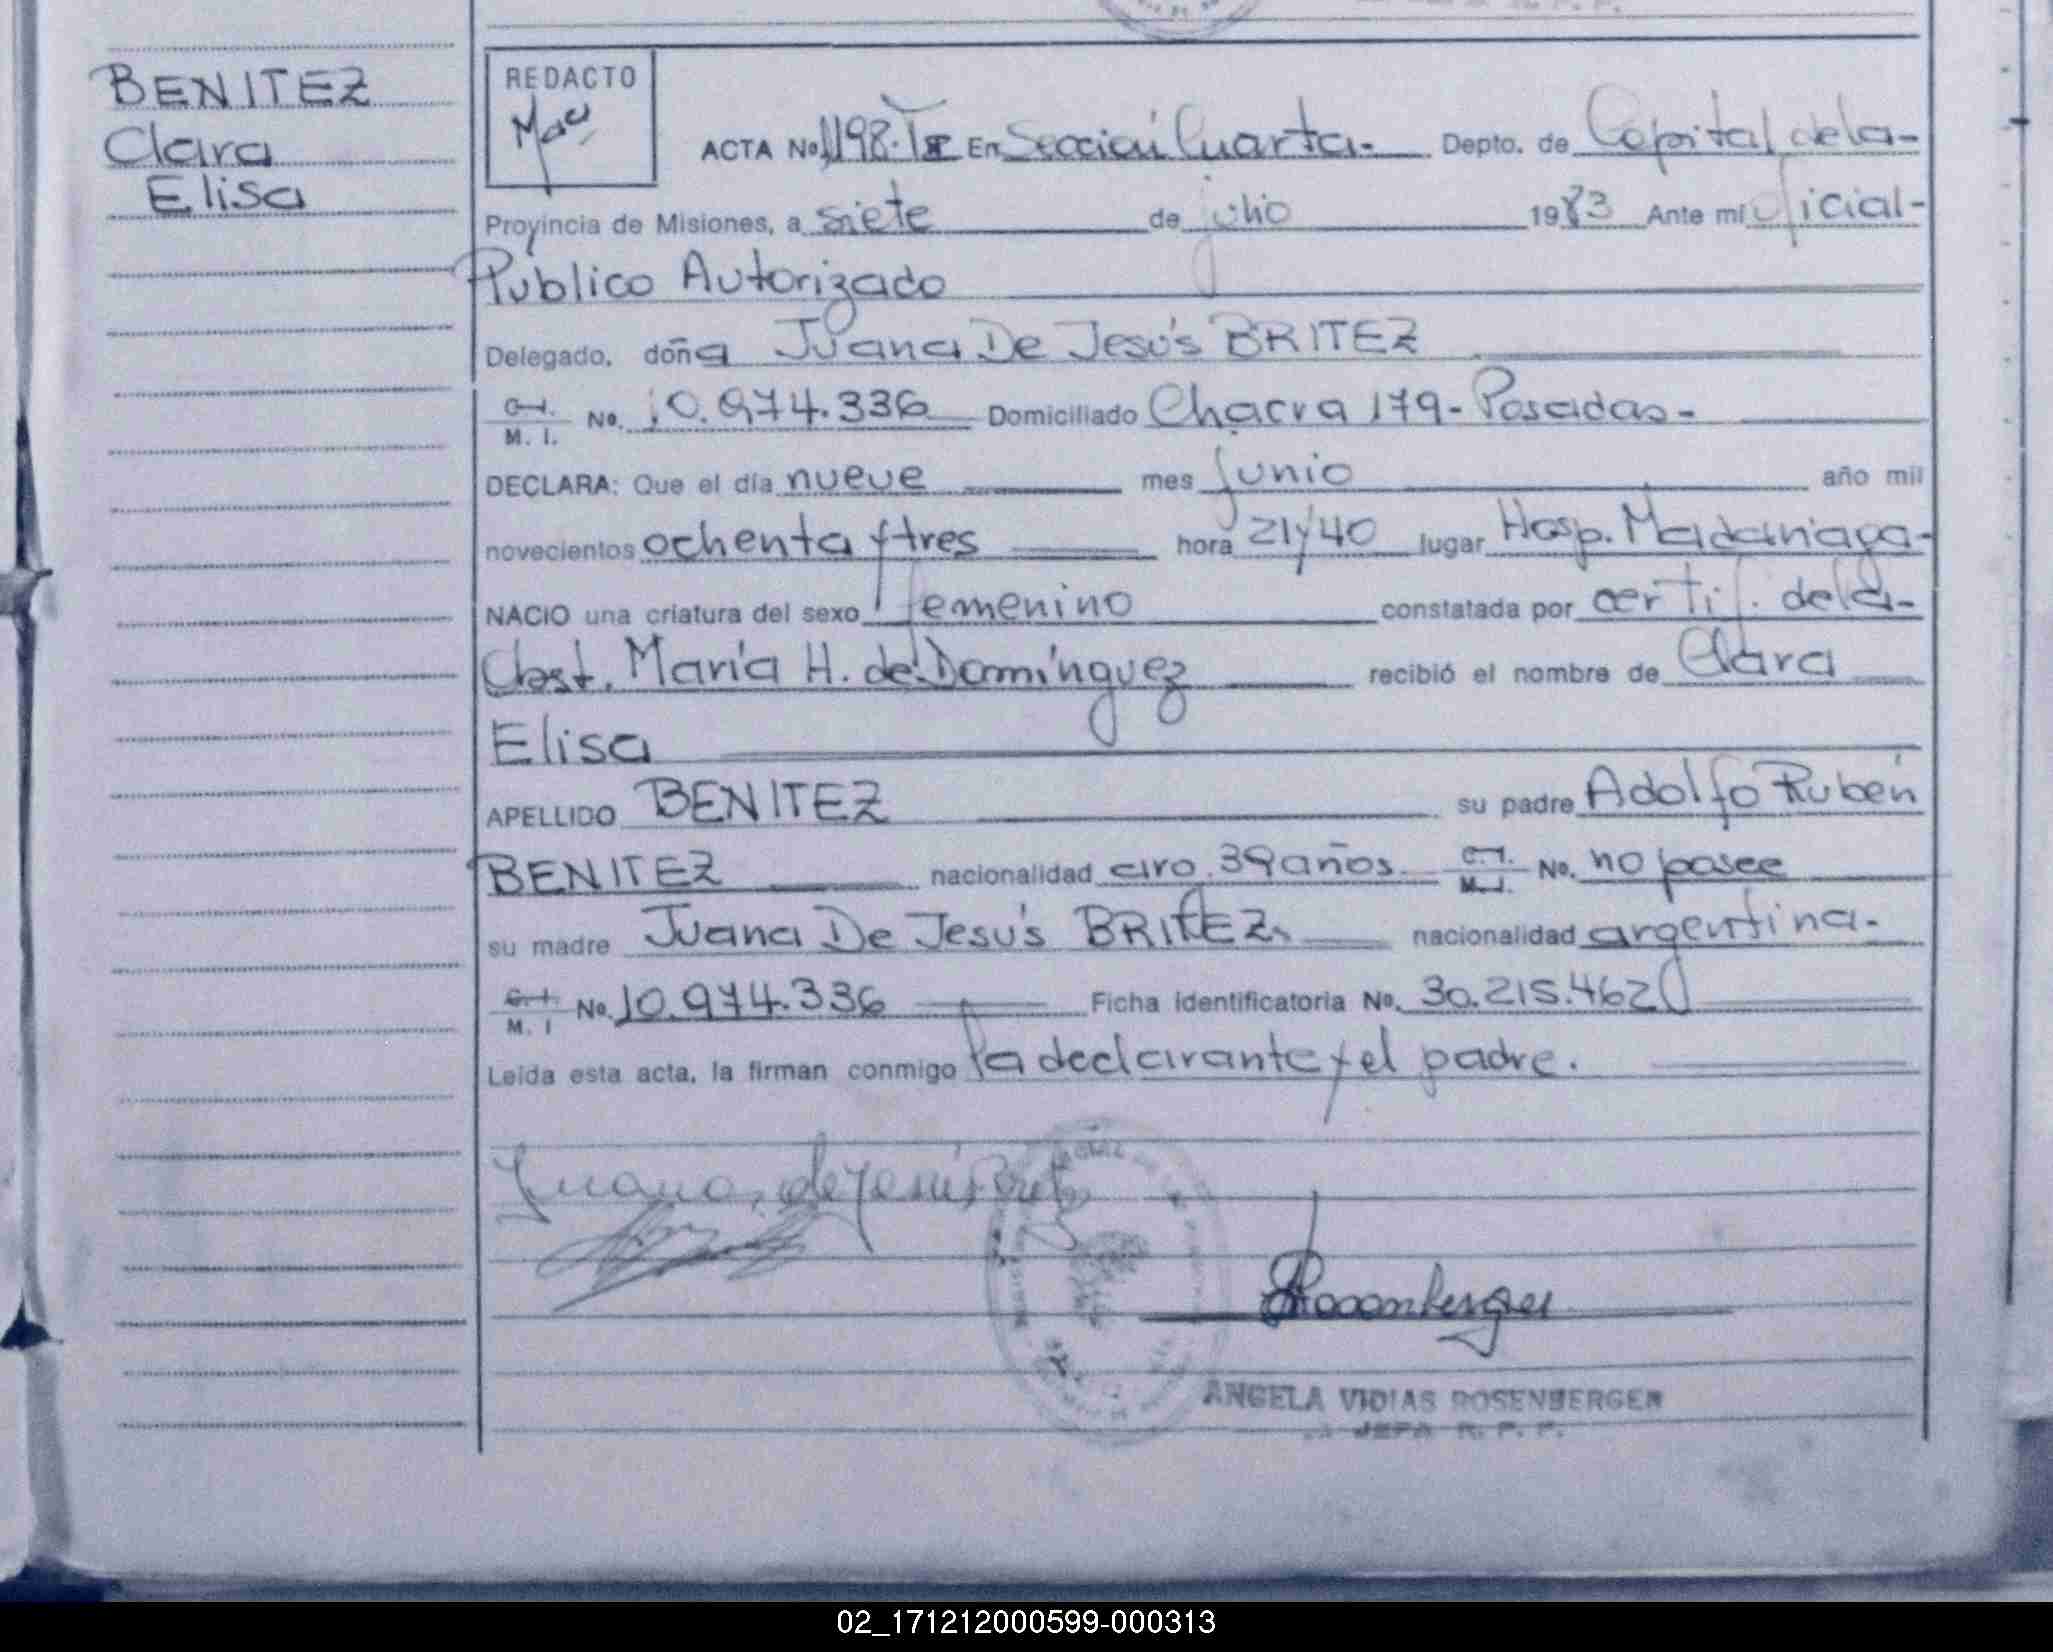 BENITEZ
Clara
Elisa
REDACTO
ACTA No 1198.T En Sección Cuarta.- Depto. de Capital dela-
Provincia de Misiones, a siete de julio 1983 Ante mi oficial-
Publico Autorizado
Delegado, doña Juana De Jesús BRITEZ
C.I. M. I. No. 10.974.336 Domiciliado Chacra 179- Posadas-
DECLARA: Que el día nueve mes junio año mil
novecientos ochenta y tres hora 21y40 lugar Hosp. Madariaga-
NACIO una criatura del sexo femenino constatada por certif. dela-
Obst. María H. de Domínguez recibió el nombre de Clara
Elisa
APELLIDO BENITEZ su padre Adolfo Rubén
BENITEZ nacionalidad aro. 39 años. C.I. M.I. No. no posee
su madre Juana De Jesús BRITEZ nacionalidad argentina.-
C.I. M. I No. 10.974.336 Ficha identificatoria No. 30.215.462
Leída esta acta, la firman conmigo la declarante y el padre.
Juana de Jesús Britez
Rosenberger
ANGELA VIDIAS ROSENBERGER
JEFA R. P. P.
02_171212000599-000313